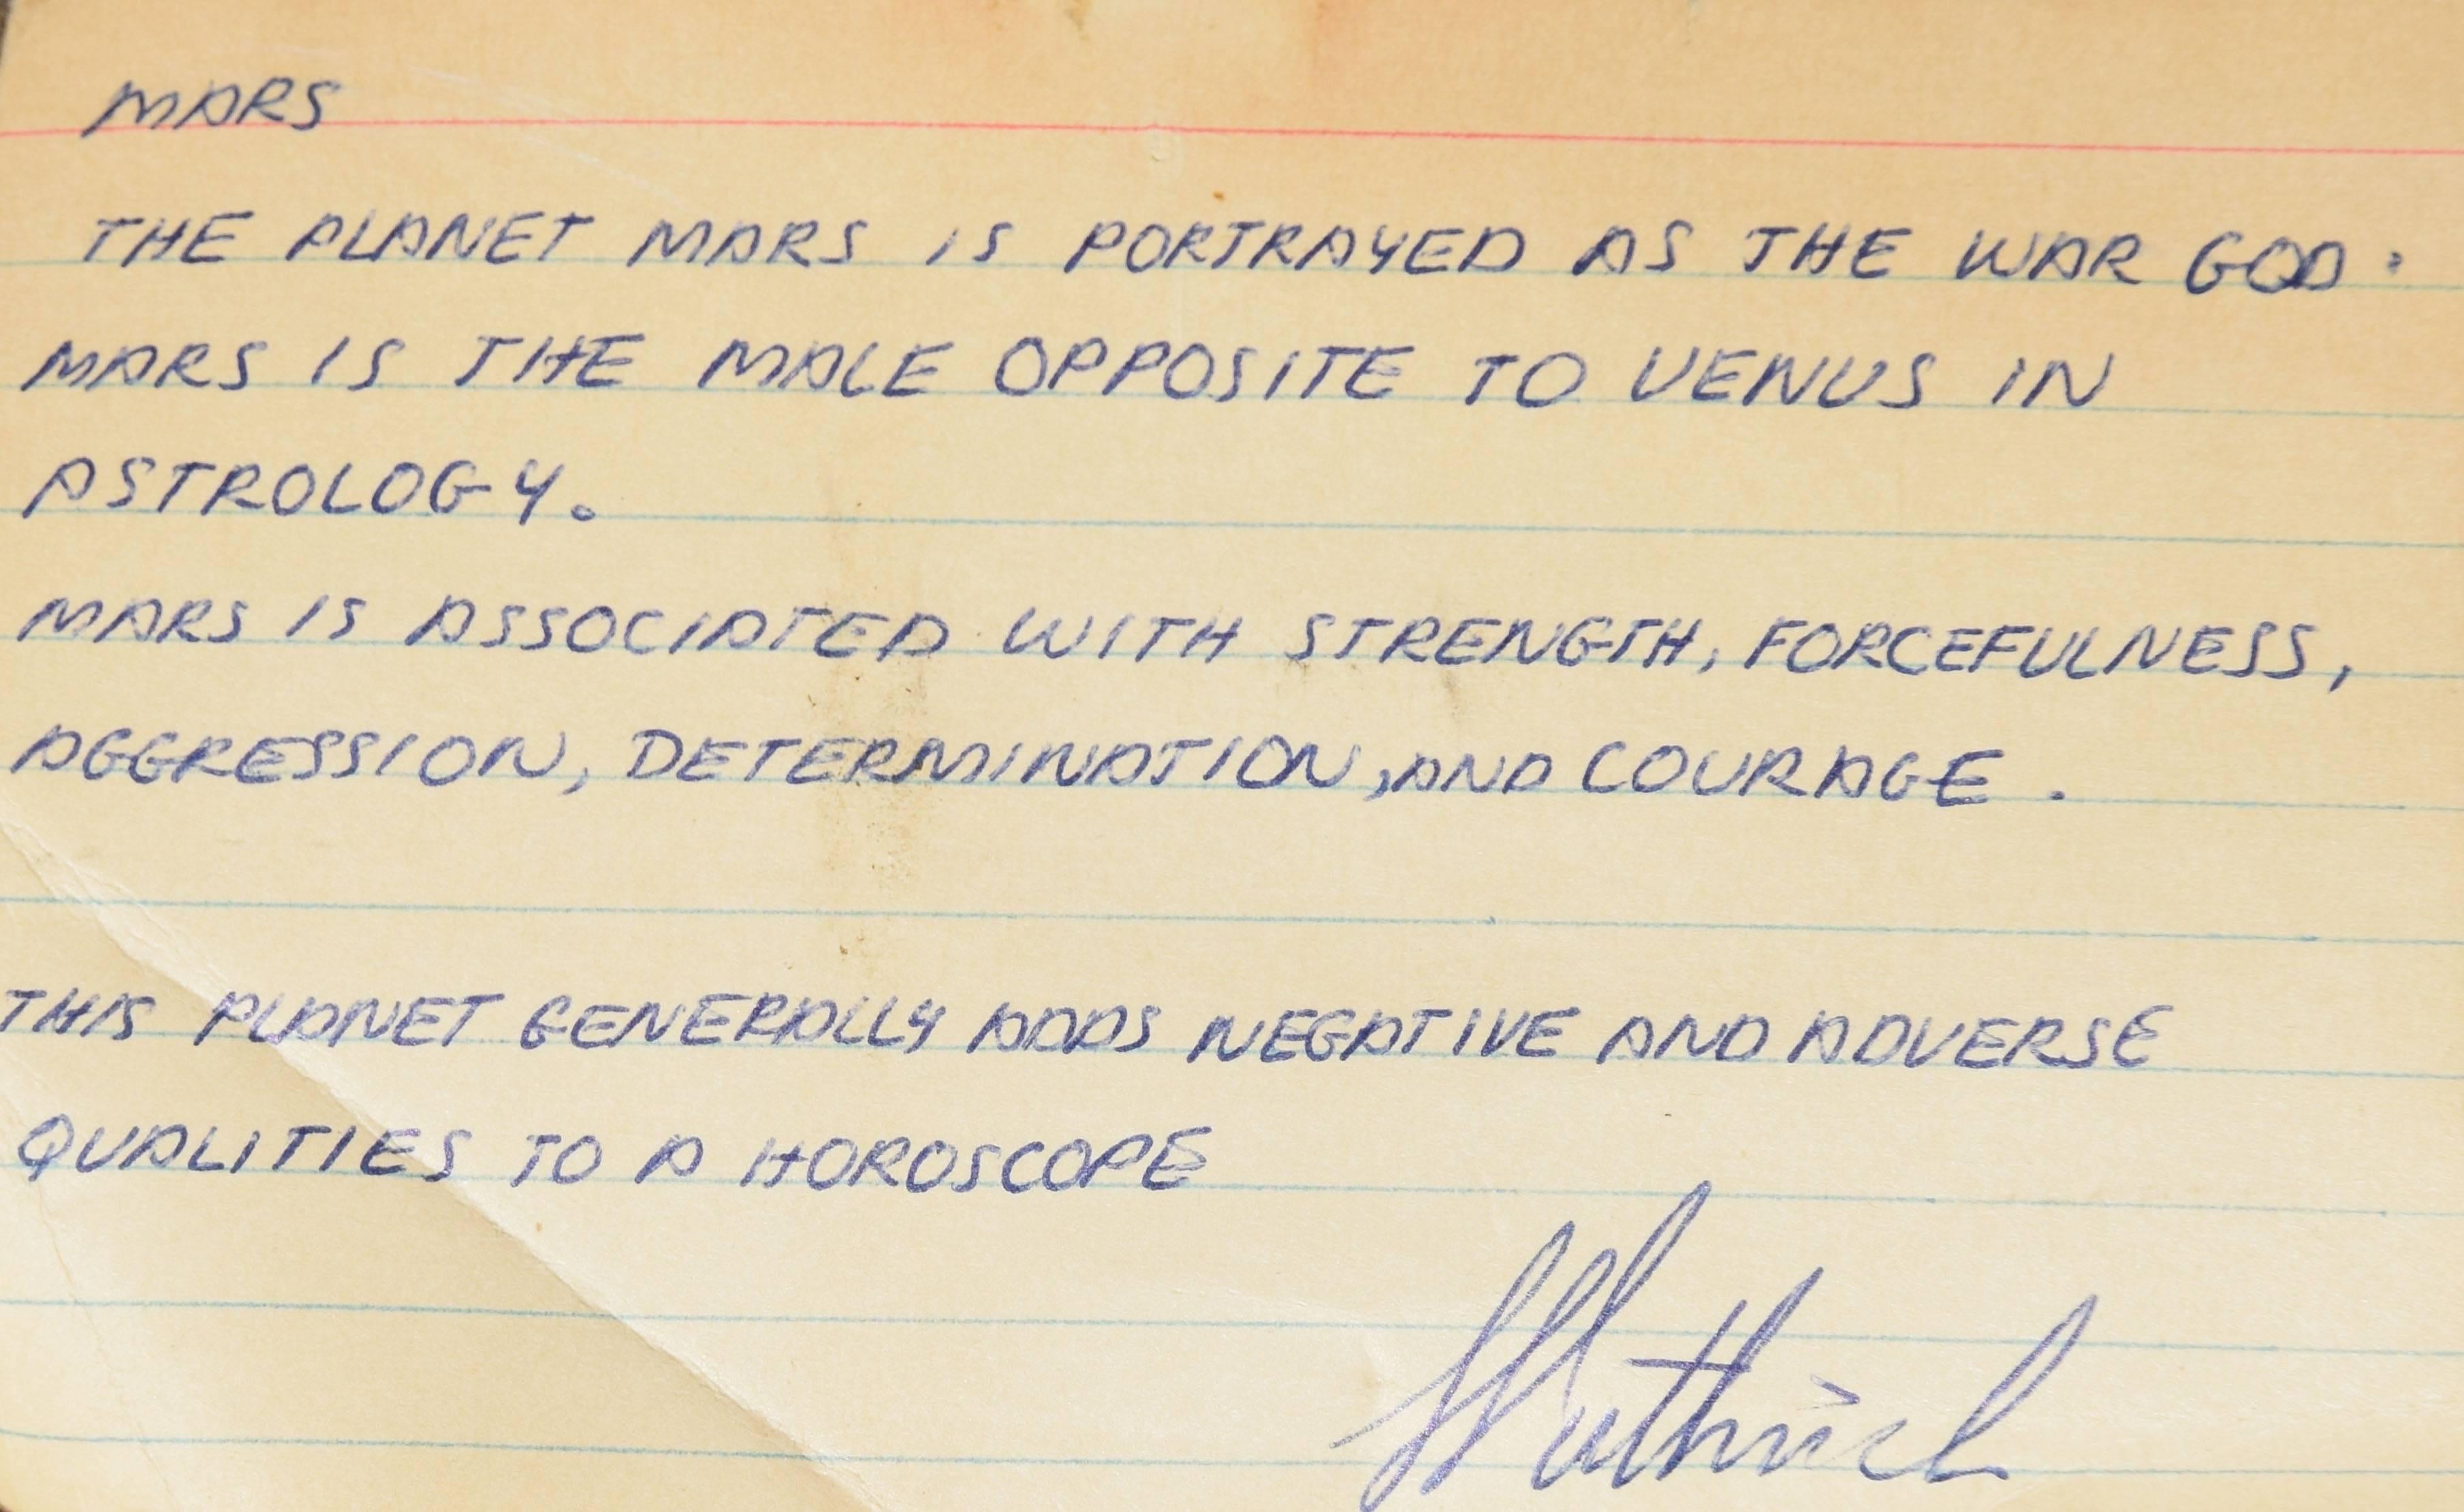 MARS
THE PLANET MARS IS PORTRAYED AS THE WAR GOD.
MARS IS THE MALE OPPOSITE TO VENUS IN
ASTROLOGY.
MARS IS ASSOCIATED WITH STRENGTH, FORCEFULNESS,
AGGRESSION, DETERMINATION, AND COURAGE.
THIS PLANET GENERALLY ADDS NEGATIVE AND ADVERSE
QUALITIES TO A HOROSCOPE